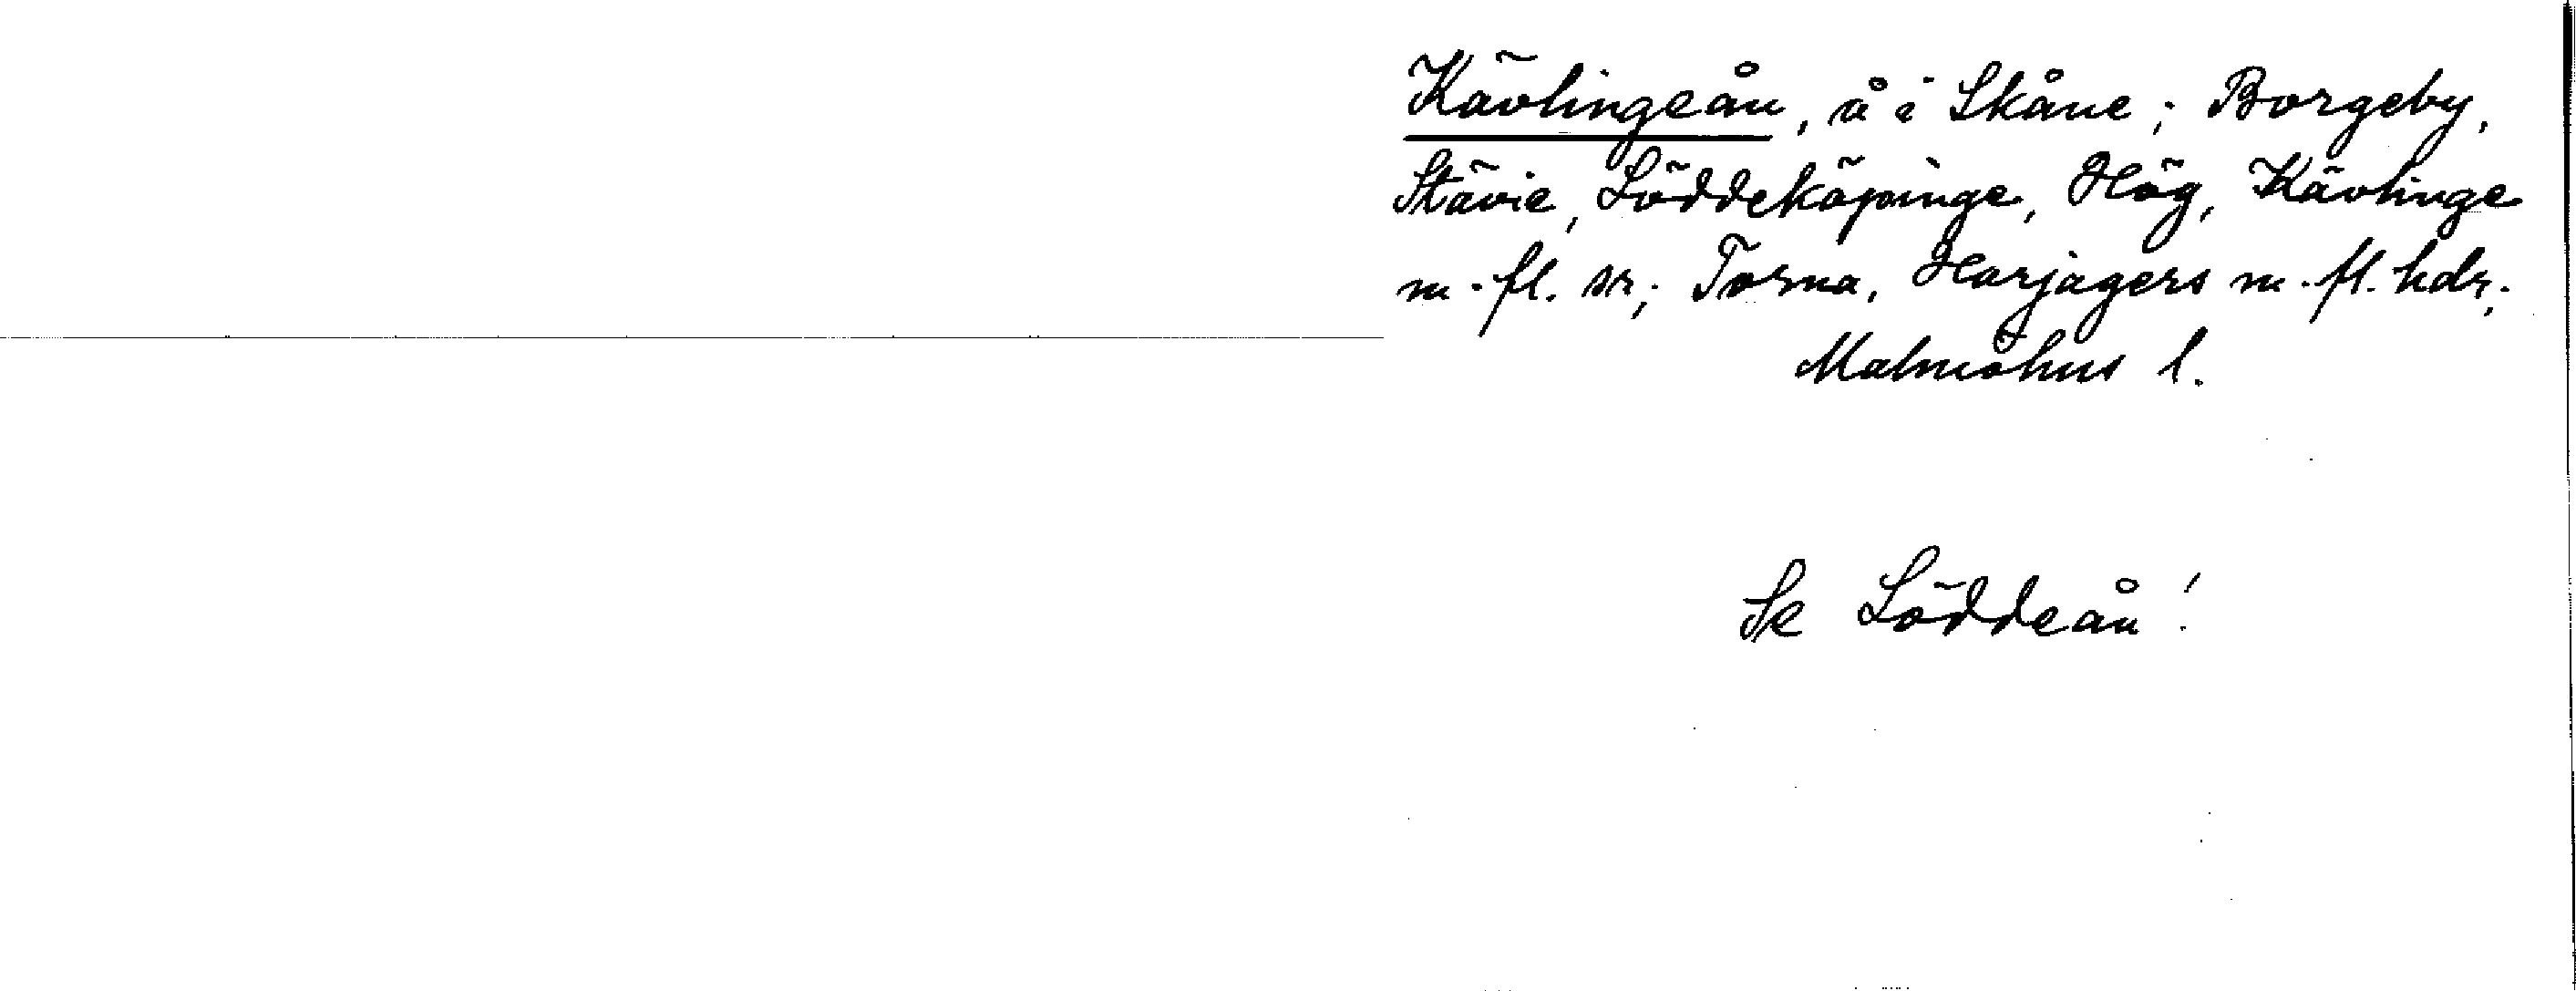 Kävlingeån, å i Skåne; Borgeby,
Stävie, Löddeköpinge, Hög, Kävlinge
m. fl. sr; Torna, Harjagers m. fl. hdr;
Malmöhus l.
Se Löddeån!